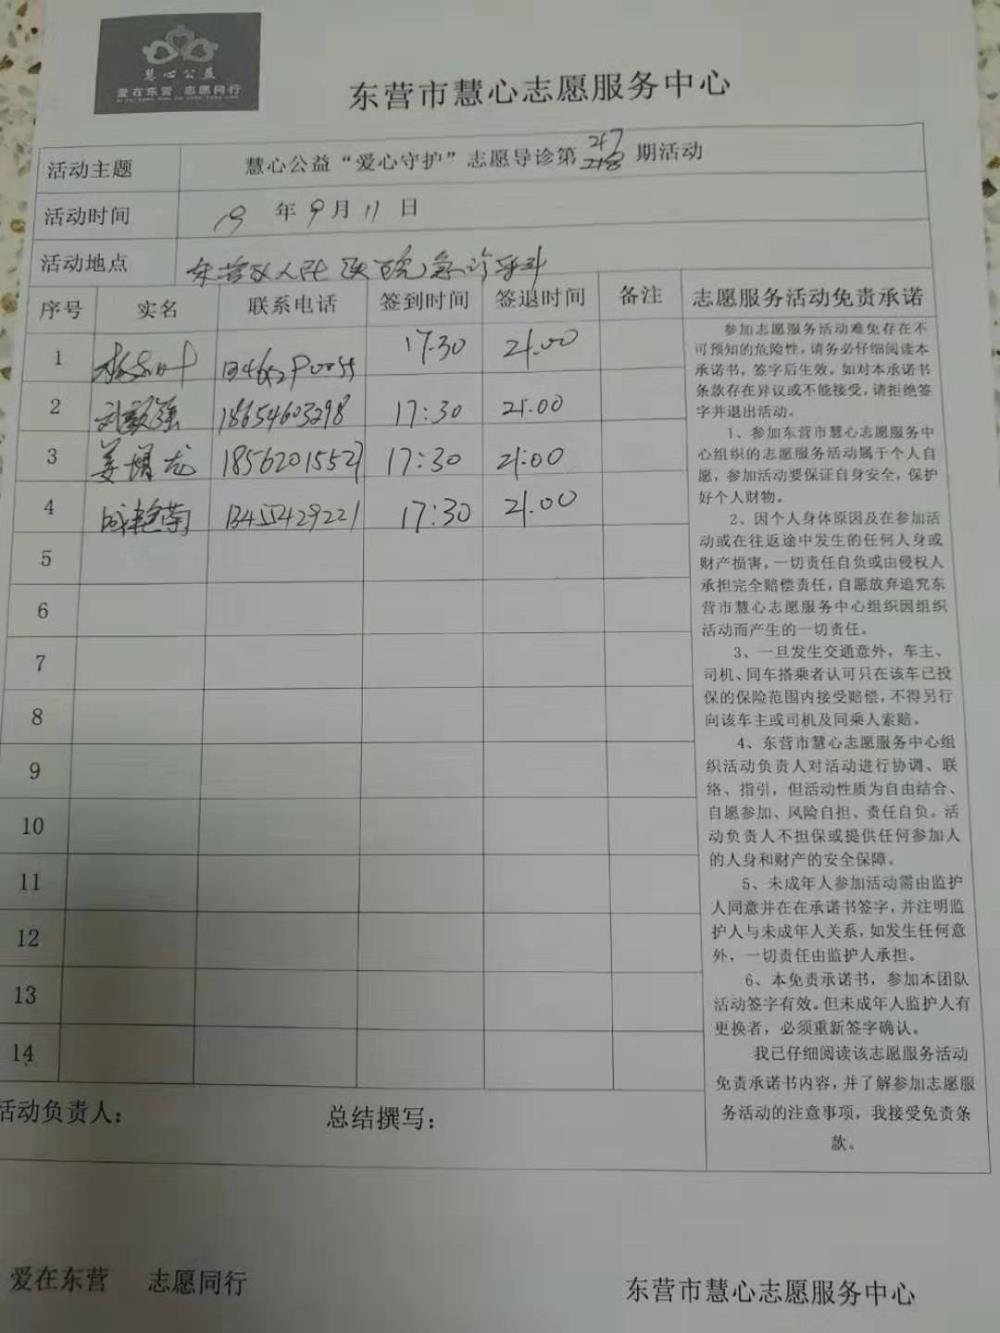 慧心公益
爱在东营 志愿同行
东营市慧心志愿服务中心
活动主题
慧心公益“爱心守护”志愿导诊第 247 期活动
活动时间
19 年 9 月 11 日
活动地点
东营区人民医院急诊
序号 实名 联系电话 签到时间 签退时间 备注 志愿服务活动免责承诺
1 17:30 21:00
2 刘毅强 18654603298 17:30 21:00
3 姜增龙 18562015521 17:30 21:00
4 成艳菊 13455429221 17:30 21:00
5
6
7
8
9
10
11
12
13
14
参加志愿服务活动难免存在不
可预知的危险性，请务必仔细阅读本
承诺书，签字后生效。如对本承诺书
条款存在异议或不能接受，请拒绝签
字并退出活动。
1、参加东营市慧心志愿服务中
心组织的志愿服务活动属于个人自
愿，参加活动要保证自身安全，保护
好个人财物。
2、因个人身体原因及在参加活
动或在往返途中发生的任何人身或
财产损害，一切责任自负或由侵权人
承担完全赔偿责任，自愿放弃追究东
营市慧心志愿服务中心组织因组织
活动而产生的一切责任。
3、一旦发生交通意外，车主、
司机、同车搭乘者认可只在该车已投
保的保险范围内接受赔偿，不得另行
向该车主或司机及同乘人索赔。
4、东营市慧心志愿服务中心组
织活动负责人对活动进行协调、联
络、指引，但活动性质为自由结合、
自愿参加、风险自担、责任自负。活
动负责人不担保或提供任何参加人
的人身和财产的安全保障。
5、未成年人参加活动需由监护
人同意并在在承诺书签字，并注明监
护人与未成年人关系，如发生任何意
外，一切责任由监护人承担。
6、本免责承诺书，参加本团队
活动签字有效。但未成年人监护人有
更换者，必须重新签字确认。
我已仔细阅读该志愿服务活动
免责承诺书内容，并了解参加志愿服
务活动的注意事项，我接受免责条
款。
活动负责人： 总结撰写：
爱在东营 志愿同行 东营市慧心志愿服务中心